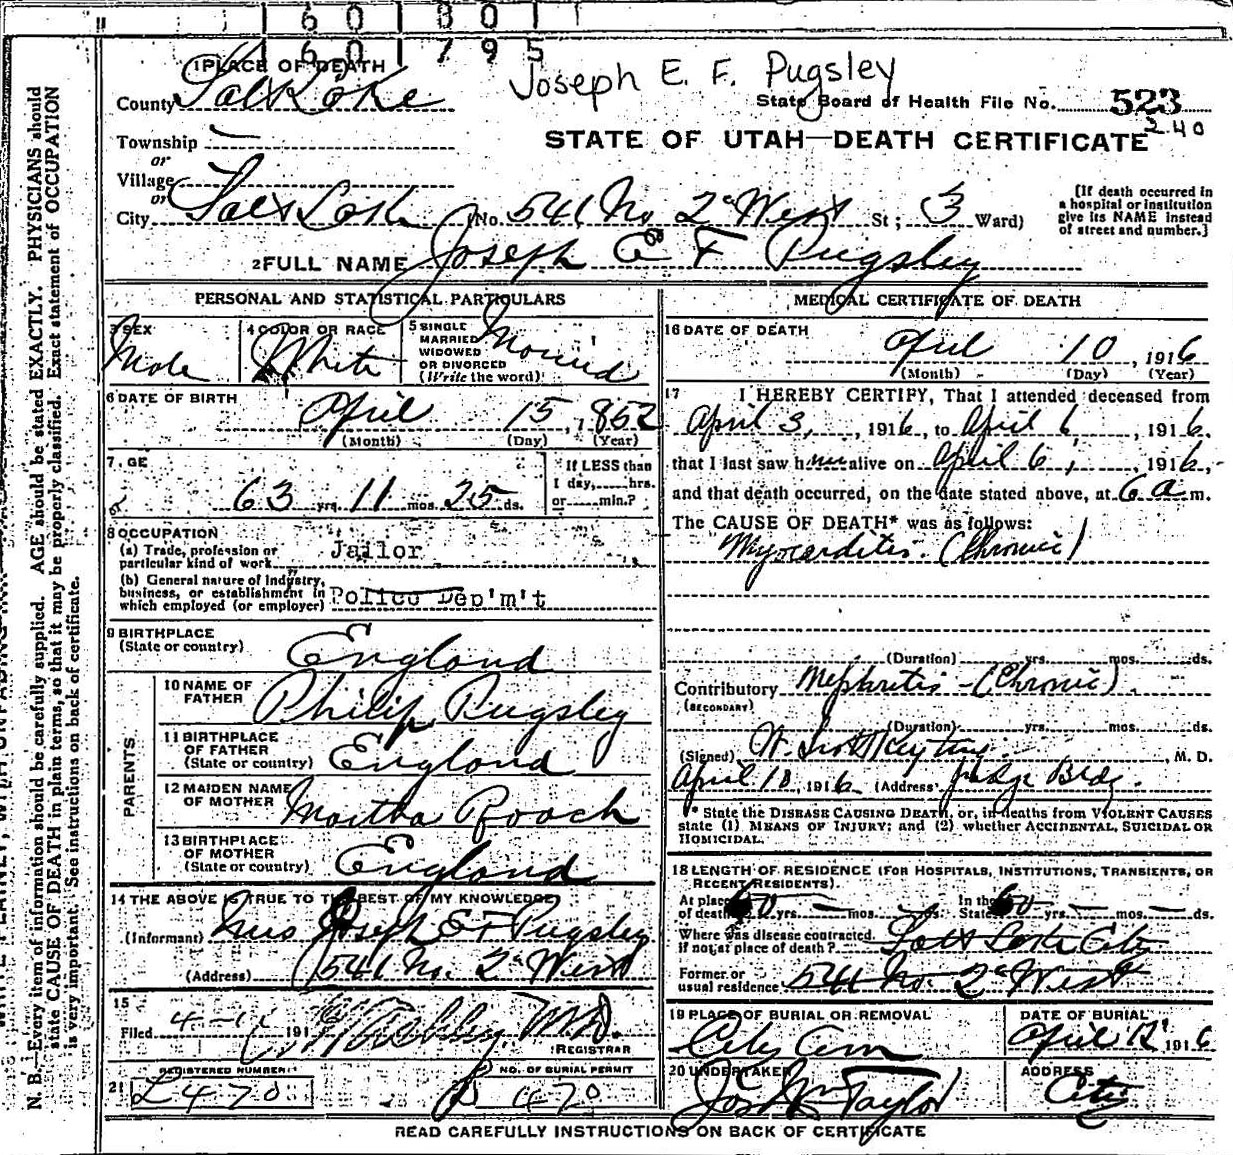 1 6 0 1 8 0 1
1 6 0 1 7 9 5
Joseph E. F. Pugsley
1 PLACE OF DEATH
County Salt Lake
State Board of Health File No. 523
240
Township —
STATE OF UTAH—DEATH CERTIFICATE
or
Village
or
City Salt Lake (No. 541 No. 2d West St; 3 Ward)
[If death occurred in a hospital or institution give its NAME instead of street and number.]
2 FULL NAME Joseph E F Pugsley
PERSONAL AND STATISTICAL PARTICULARS
3 SEX Male
4 COLOR OR RACE White
5 SINGLE MARRIED WIDOWED OR DIVORCED (Write the word) Married
6 DATE OF BIRTH April 15, 1852
(Month) (Day) (Year)
7. GE 63 yrs. 11 mos. 25 ds.
If LESS than 1 day, hrs. or min.?
8 OCCUPATION
(a) Trade, profession or particular kind of work Jailor
(b) General nature of Industry, business, or establishment in which employed (or employer) Police Dep'm't
9 BIRTHPLACE (State or country) England
PARENTS
10 NAME OF FATHER Philip Pugsley
11 BIRTHPLACE OF FATHER (State or country) England
12 MAIDEN NAME OF MOTHER Martha Roach
13 BIRTHPLACE OF MOTHER (State or country) England
14 THE ABOVE IS TRUE TO THE BEST OF MY KNOWLEDGE
(Informant) Mrs Joseph E F Pugsley
(Address) 541 No. 2d West
15
Filed 4-11 191 M.D.
REGISTRAR
REGISTERED NUMBER NO. OF BURIAL PERMIT
21 L470 B 470
MEDICAL CERTIFICATE OF DEATH
16 DATE OF DEATH
April 10, 1916
(Month) (Day) (Year)
17 I HEREBY CERTIFY, That I attended deceased from
April 3, 1916, to April 6, 1916,
that I last saw him alive on April 6, 1916,
and that death occurred, on the date stated above, at 6 a m.
The CAUSE OF DEATH* was as follows:
Myocarditis. (Chronic)
(Duration) yrs. mos. ds.
Contributory Nephritis - (Chronic)
(SECONDARY)
(Duration) yrs. mos. ds.
(Signed) M. D.
April 10, 1916 (Address) Judge Bldg.
* State the DISEASE CAUSING DEATH, or, in deaths from VIOLENT CAUSES
state (1) MEANS OF INJURY; and (2) whether ACCIDENTAL, SUICIDAL OR
HOMICIDAL.
18 LENGTH OF RESIDENCE (FOR HOSPITALS, INSTITUTIONS, TRANSIENTS, OR
RECENT RESIDENTS).
At place of death 60 yrs — mos. — ds. In the State 60 yrs. — mos. — ds.
Where was disease contracted. If not at place of death? Salt Lake City
Former or usual residence 541 No. 2d West
19 PLACE OF BURIAL OR REMOVAL City Cem
DATE OF BURIAL April 12 1916
20 UNDERTAKER Jos Wm Taylor
ADDRESS City
READ CAREFULLY INSTRUCTIONS ON BACK OF CERTIFICATE
N. B.—Every item of information should be carefully supplied. AGE should be stated EXACTLY. PHYSICIANS should
state CAUSE OF DEATH in plain terms, so that it may be properly classified. Exact statement of OCCUPATION
is very important. See instructions on back of certificate.